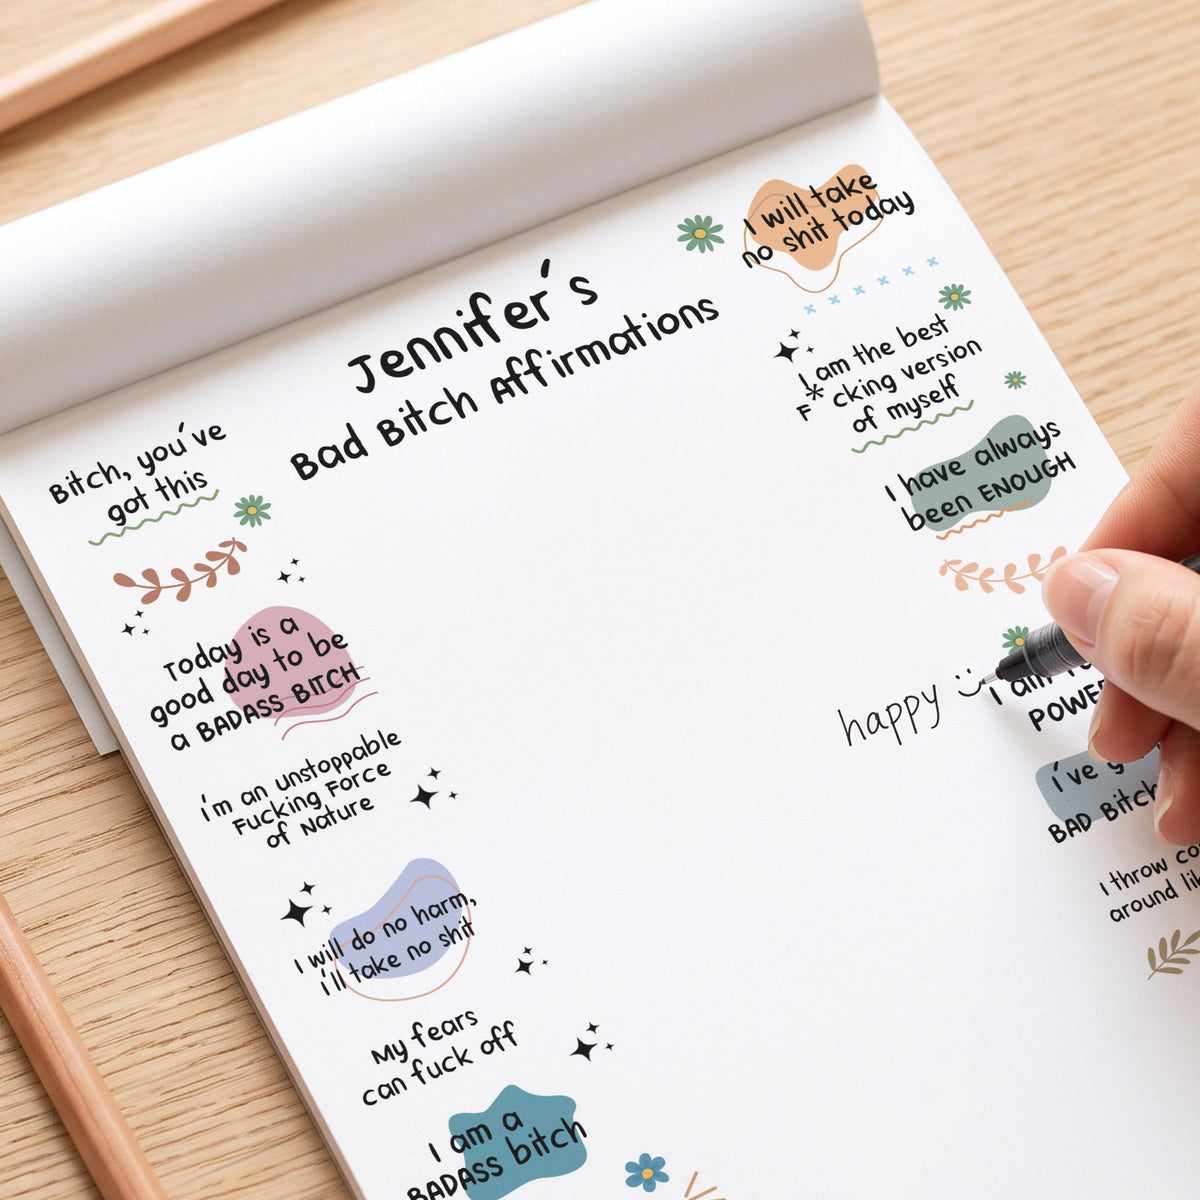 Jennifer's
Bad Bitch Affirmations
Bitch, you've
got this
Today is a
good day to be
a BADASS BITCH
i'm an unstoppable
Fucking Force
of Nature
I will do no harm,
i'll take no shit
My fears
can fuck off
I am a
BADASS bitch
I will take
no shit today
I am the best
F*cking version
of myself
I have always
been ENOUGH
happy
I am
i've
BAD Bitch
I throw
around